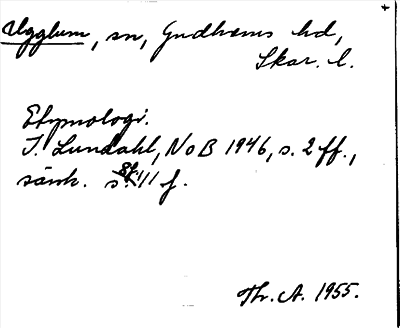 Ugglum, sn, Gudhems hd,
Skar. l.
Etymologi.
I. Lundahl, NoB 1946, s. 2 ff.,
särsk. s. 11 f.
Th. A. 1955.